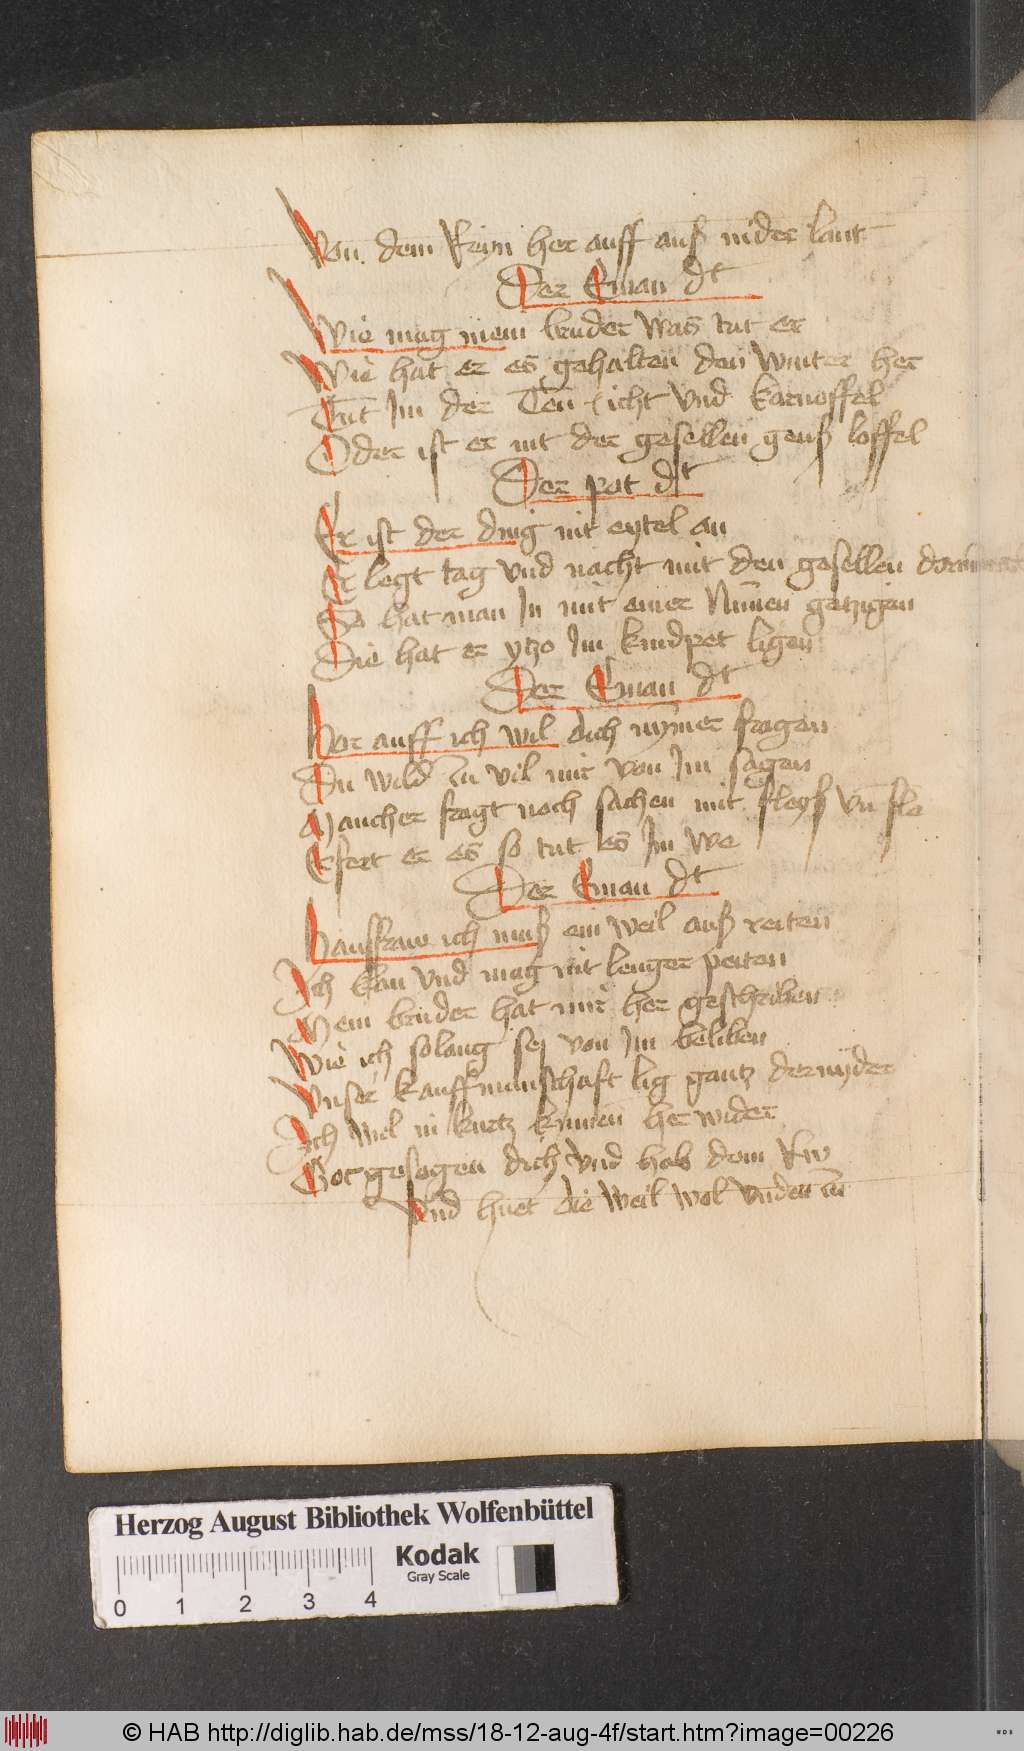 Von dem Reyn her auff auß nider lant
Der Eman dt
Wie mag mein bruder was tut er
Wie hat er es gehalten den winter her
Tut Im der icht vnd karnoffel
Oder ist er nit der gesellen genß loffel
Der pot dt
Er ist der ding nit eytel an
Er legt tag vnd nacht mit den gesellen
So hat man In mit einer Nunen getzigen
Die hat er ytzo Im kindpet ligen
Der Eman dt
Hor auff ich wil dich nymer fragen
Du wild zu vil mir von Im sagen
Mancher fragt noch sachen mit fleyß vn fle
Erfert er es so tut es Im we
Der Eman dt
Haussfraw ich muß ein weil auß reiten
Ich kan vnd mag nit lenger peiten
Mein bruder hat mir her geschriben
Wie ich solang sej von Im beliben
Vnser kauffmunschaft lig gantz dernyder
Ich wil in kurtz kumen her wider
Got gesegen dich vnd hab dein Rw
Vnd huet die weil wol vnden zu
Herzog August Bibliothek Wolfenbüttel
Kodak
Gray Scale
0 1 2 3 4
© HAB http://diglib.hab.de/mss/18-12-aug-4f/start.htm?image=00226
WDB